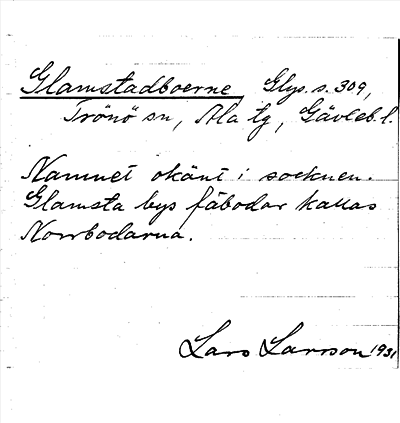 Glamstadboerne Glys. s. 309,
Trönö sn, Ala tg, Gävleb. l.
Namnet okänt i socknen.
Glamsta bys fäbodar kallas
Norrbodarna.
Lars Larsson 1931